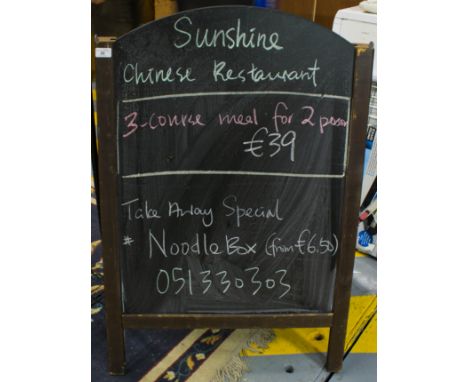 Sunshine
Chinese Restaurant
3-course meal for 2 person
€39
Take Away Special
* Noodle Box (from €6.50)
051330303